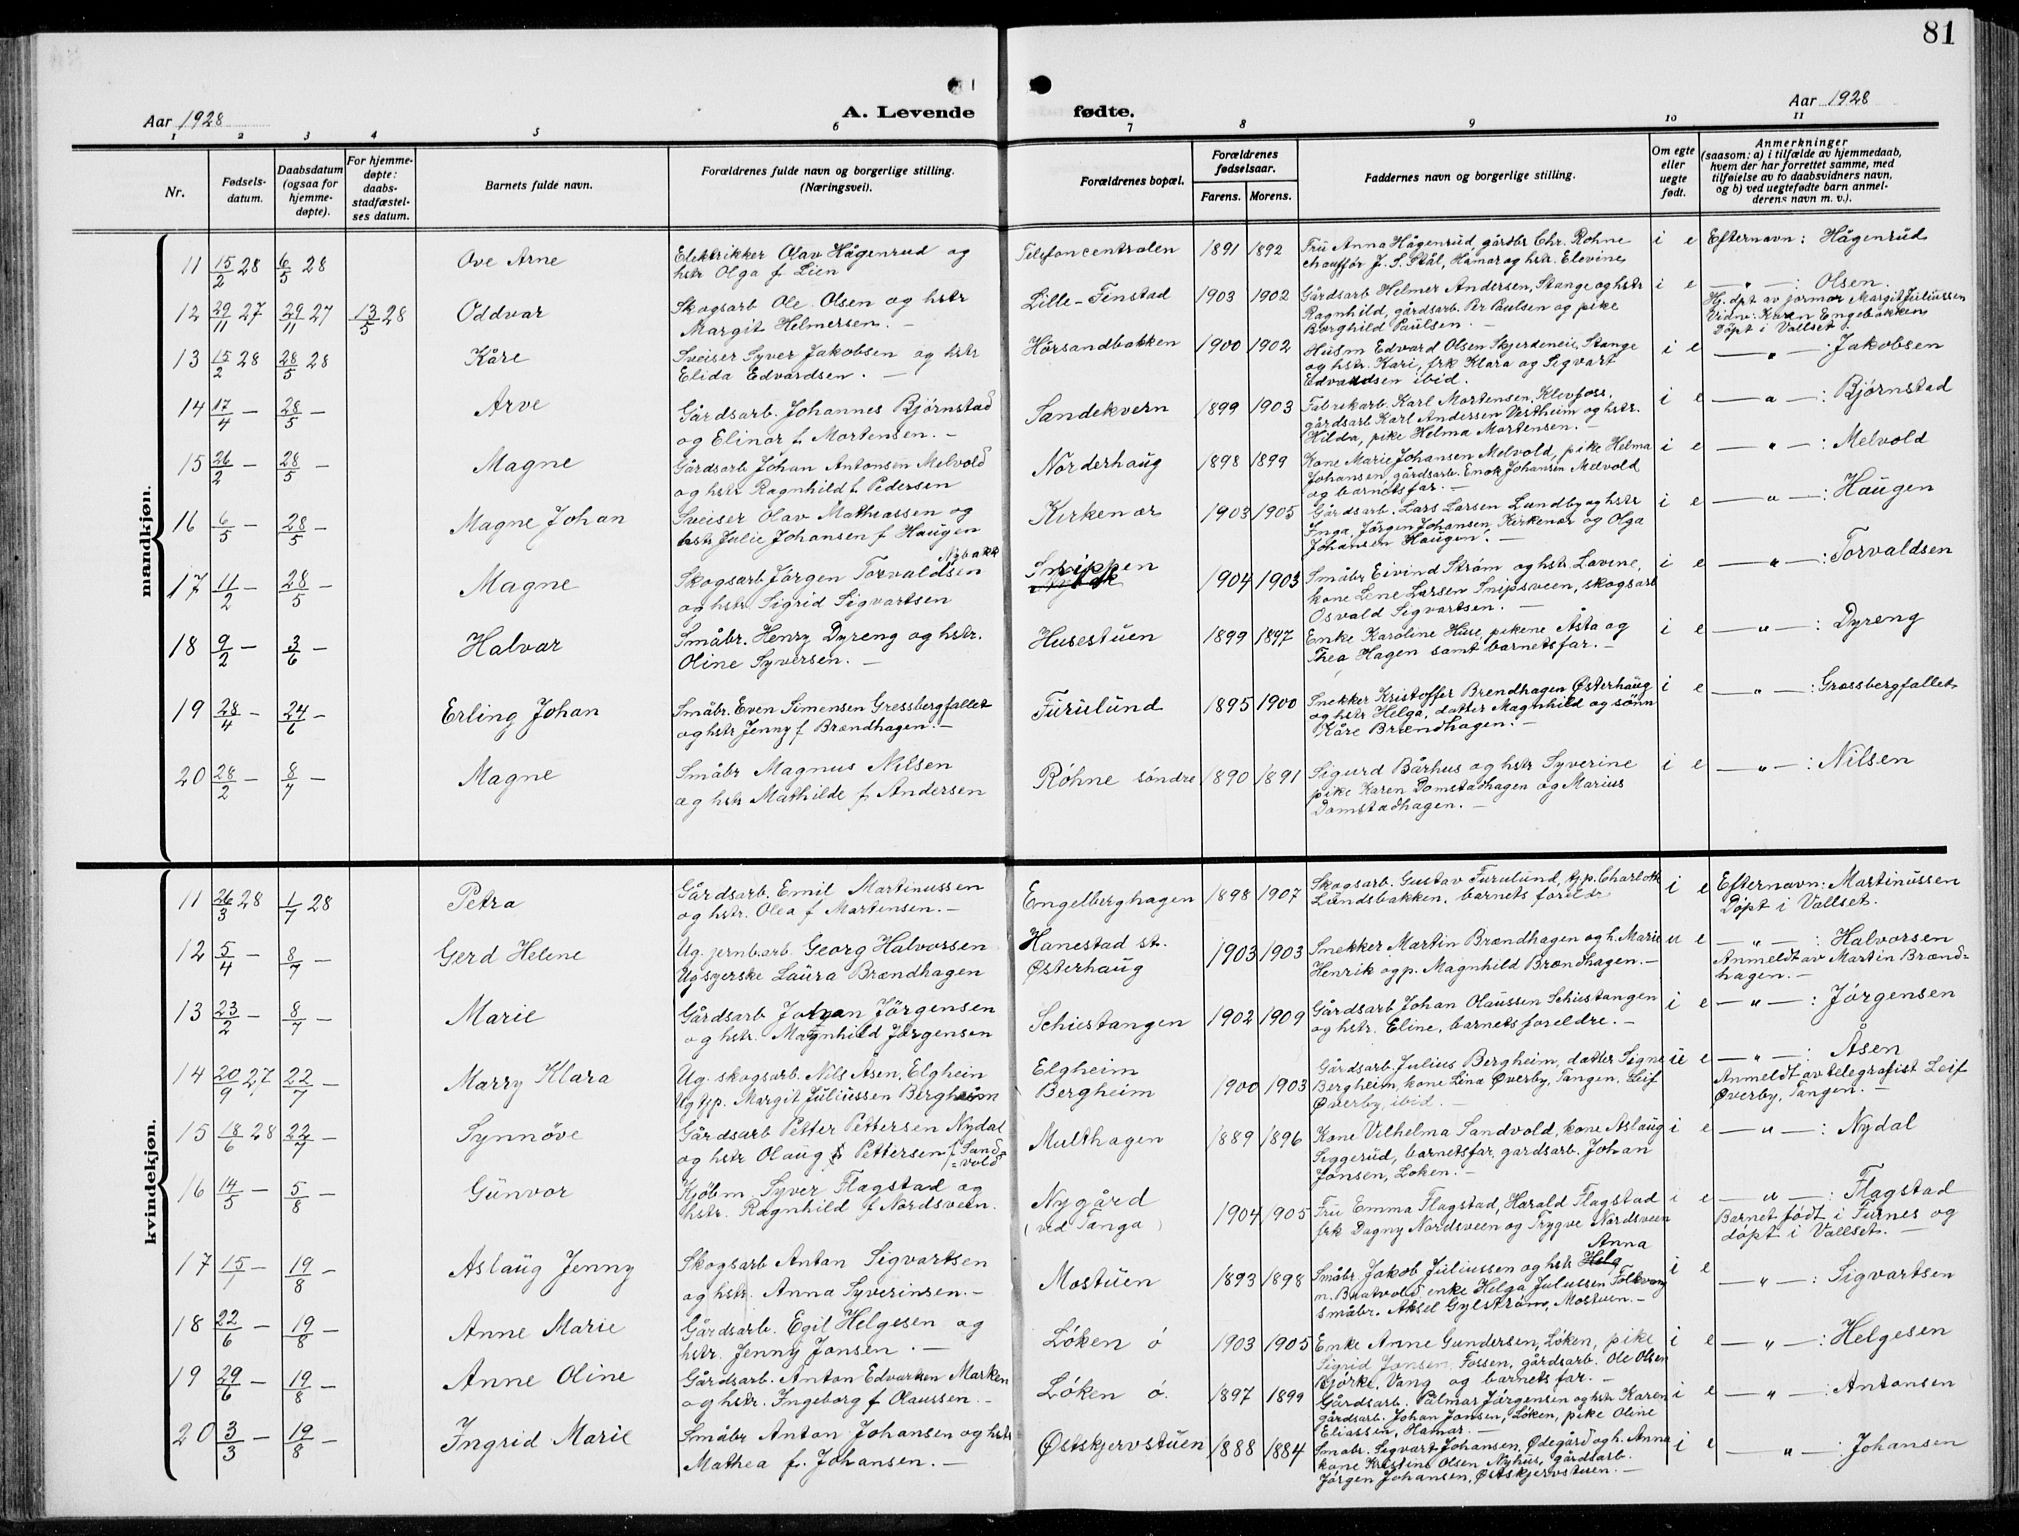 81
Aar 1928
A. Levende fødte.
Aar 1928
1 2 3 4 5 6 7 8 9 10 11
Nr.
Fødsels-
datum.
Daabsdatum
(ogsaa for
hjemme-
døpte).
For hjemme-
døpte:
daabs-
stadfæstel-
ses datum.
Barnets fulde navn.
Forældrenes fulde navn og borgerlige stilling.
(Næringsvei).
Forældrenes bopæl.
Forældrenes
fødselsaar.
Farens. Morens.
Faddernes navn og borgerlige stilling.
Om egte
eller
uegte
født.
Anmerkninger
(saasom: a) i tilfælde av hjemmedaab,
hvem der har forrettet samme, med
tilføielse av to daabsvidners navn,
og b) ved uegtefødte barn anmel-
derens navn m. v.).
mandkjøn.
11 15/2 28 6/5 28 Ove Arne
Elektrikker Olav Hågenrud og
hstr Olga f Lien
Telefoncentralen 1891 1892
Fru Anna Hågenrud, gårdbr Chr. Røhne
chauffør J. S. Stål, Hamar og hstr. Elevine
i e Efternavn: Hågenrud
12 29/11 27 29/11 27 13/5 28 Oddvar
Skogsarb Ole Olsen og hstr
Margit Helmersen. —
Lille-Finstad 1903 1902
Gårdsarb Helmer Andersen, Stange og hstr
Ragnhild, gårdsarb. Per Paulsen og pike
Borghild Paulsen. —
i e — " — : Olsen.
Hj. dpt av jormor Margit Juliussen
Vidn: Karen Engebakken
Døpt i Vallset
13 15/2 28 28/5 28 Kåre
Sveiser Syver Jakobsen og hstr
Elida Edvardsen. —
Hørsandbakken 1900 1902
Husm Edvard Olsen Skjerdeneie, Stange
og hstr. Kari, frk Klara og Sigvart
Edvardsen ibid.
i e — " — : Jakobsen
14 17/4 — 28/5 — Arve
Gårdsarb. Johannes Bjørnstad
og Elinor f. Mortensen. —
Sandekvern 1899 1903
Fabrikarb. Karl Mortensen, Klevfoss,
gårdsarb Karl Andersen Vestheim og hstr.
Hilda, pike Helma Mortensen. —
i e — " — : Bjørnstad
15 26/2 — 28/5 — Magne
Gårdsarb Johan Antonsen Melvold
og hstr Ragnhild f. Pedersen
Norderhaug 1898 1899
Kone Marie Johansen Melvold, pike Helma
Johansen, gårdsarb. Enok Johansen Melvold
og barnets far. —
i e — " — : Melvold
16 6/5 — 28/5 — Magne Johan
Sveiser Olav Mathiassen og
hstr Julie Johansen f Haugen
Kirkenær 1903 1905
Gårdsarb. Lars Larsen Lundby og hstr
Inga, Jørgen Johansen, Kirkenær og Olga
Johansen Haugen. —
i e — " — : Haugen
17 11/2 — 28/5 — Magne
Nybakk
Skogsarb Jørgen Torvaldsen
og hstr. Sigrid Sigvartsen
Snippen 1904 1903
Småbr Eivind Strøm og hstr. Lovene,
kone Lene Larsen Snipsveen, skogsarb
Osvald Sigvartsen. —
i e — " — : Torvaldsen
18 9/2 — 3/6 — Halvar
Småbr. Henry Dyreng og hstr.
Oline Syversen. —
Husestuen 1899 1897
Enke Karoline Huse, pikene Åsta og
Thea Hagen samt barnets far. —
i e — " — : Dyreng
19 28/4 — 24/6 — Erling Johan
Småbr. Even Simensen Gressbergfallet
og hstr Jenny f. Brændhagen. —
Furulund 1895 1900
Snekker Kristoffer Brendhagen Østerhaug
og hstr Helga, datter Magnhild og sønn
Kåre Brændhagen. —
i e — " — : Grøssbergfallet
20 28/2 — 8/7 — Magne
Småbr Magnus Nilsen
og hstr Mathilde f. Andersen
Røhne søndre 1890 1891
Sigurd Bårhus og hstr Syverine
pike Karen Domstadhagen og Marius
Domstadhagen. —
i e — " — : Nilsen
kvindekjøn.
11 26/3 28 1/7 28 Petra
Gårdsarb. Emil Martinussen
og hstr. Olea f Martensen. —
Engelberghagen 1898 1907
Skogsarb. Gustav Furulund, tj.p. Charlotte
Lundsbakken, barnets foreldr
i e Efternavn: Martinussen
Døpt i Vallset.
12 5/4 — 8/7 — Gerd Helene
Ug. jernb.arb. Georg Halvorsen
Ug syerske Laura Brændhagen
Hanestad st.
Østerhaug 1903 1903
Snekker Martin Brændhagen og h. Marie
Henrik og p. Magnhild Brændhagen. —
u e — " — : Halvorsen
Anmeldt av Martin Brænd=
hagen. —
13 23/2 — 8/7 — Marie
Gårdsarb Johan Jørgensen
og hstr. Magnhild Jørgensen
Schiestangen 1902 1909
Gårdsarb Johan Olaussen Schiestangen
og hstr. Eline, barnets foreldre. —
i e — " — : Jørgensen
14 20/9 27 22/7 — Marry Klara
Ug. skogsarb. Nils Åsen, Elgheim
Ug tjp. Margit Juliussen Bergheim
Elgheim
Bergheim 1900 1903
Gårdsarb. Julius Bergheim, datter Signe
Bergheim, kone Lina Øverby, Tangen, Leif
Øverby, ibid. —
u e — " — : Åsen
Anmeldt av telegrafist Leif
Øverby, Tangen. —
15 18/6 28 22/7 — Synnöve
Gårdsarb Petter Pettersen Nydal
og hstr Olaug Pettersen f. Sand=
=vold
Multhagen 1889 1896
Kone Vilhelma Sandvold, kone Aslaug
Siggerud, barnets far, gardsarb. Johan
Jonsen, Løken. —
i e — " — : Nydal
16 14/5 — 5/8 — Gunvor
Kjøbm. Syver Flagstad og
hstr. Ragnhild f Nordsveen.
Nygård
(ved Tanga) 1904 1905
Fru Emma Flagstad, Harald Flagstad
frk Dagny Nordsveen og Trygve Nordsveen
i e — " — : Flagstad
Barnet født i Furnes og
døpt i Vallset. —
17 15/1 — 19/8 — Aslaug Jenny
Skogsarb Anton Sigvartsen
og hstr. Anna Syverinsen. —
Mostuen 1893 1898
Anna
Småbr Jakob Juliussen og hstr Helg
m. Baatvold, enke Helga Juliussen Folkvang
småbr. Aksel Gylstrøm, Mostuen. —
i e — " — : Sigvartsen
18 22/6 — 19/8 — Anne Marie
Gårdsarb. Egil Helgesen og
hstr. Jenny Jonsen. —
Løken ø 1903 1905
Enke Anne Gundersen, Løken, pike
Sigrid Jonsen Fossen, gårdsarb. Ole Olsen
Bjørke, Vang og barnets far. —
i e — " — : Helgesen
19 29/6 — 19/8 — Anne Oline
Gårdsarb. Anton Edvartsen Marken
og hstr. Ingeborg f Olaussen. —
Løken ø. 1897 1899
Gårdsarb. Palmar Jørgensen og hstr Karen
gårdsarb. Johan Jonsen, Løken, pike Oline
Eliassen, Hamar. —
i e — " — : Antonsen
20 3/3 — 19/8 — Ingrid Marie
Småbr Anton Johansen og hstr
Mathea f. Johansen. —
Østskjervstuen 1888 1884
Småbr. Sigvart Johansen, Ødegård og h. Anna
kone Kristine Olsen Nyhus, gårdsarb.
Jørgen Johansen, Østskjervstuen. —
i e " — : Johansen